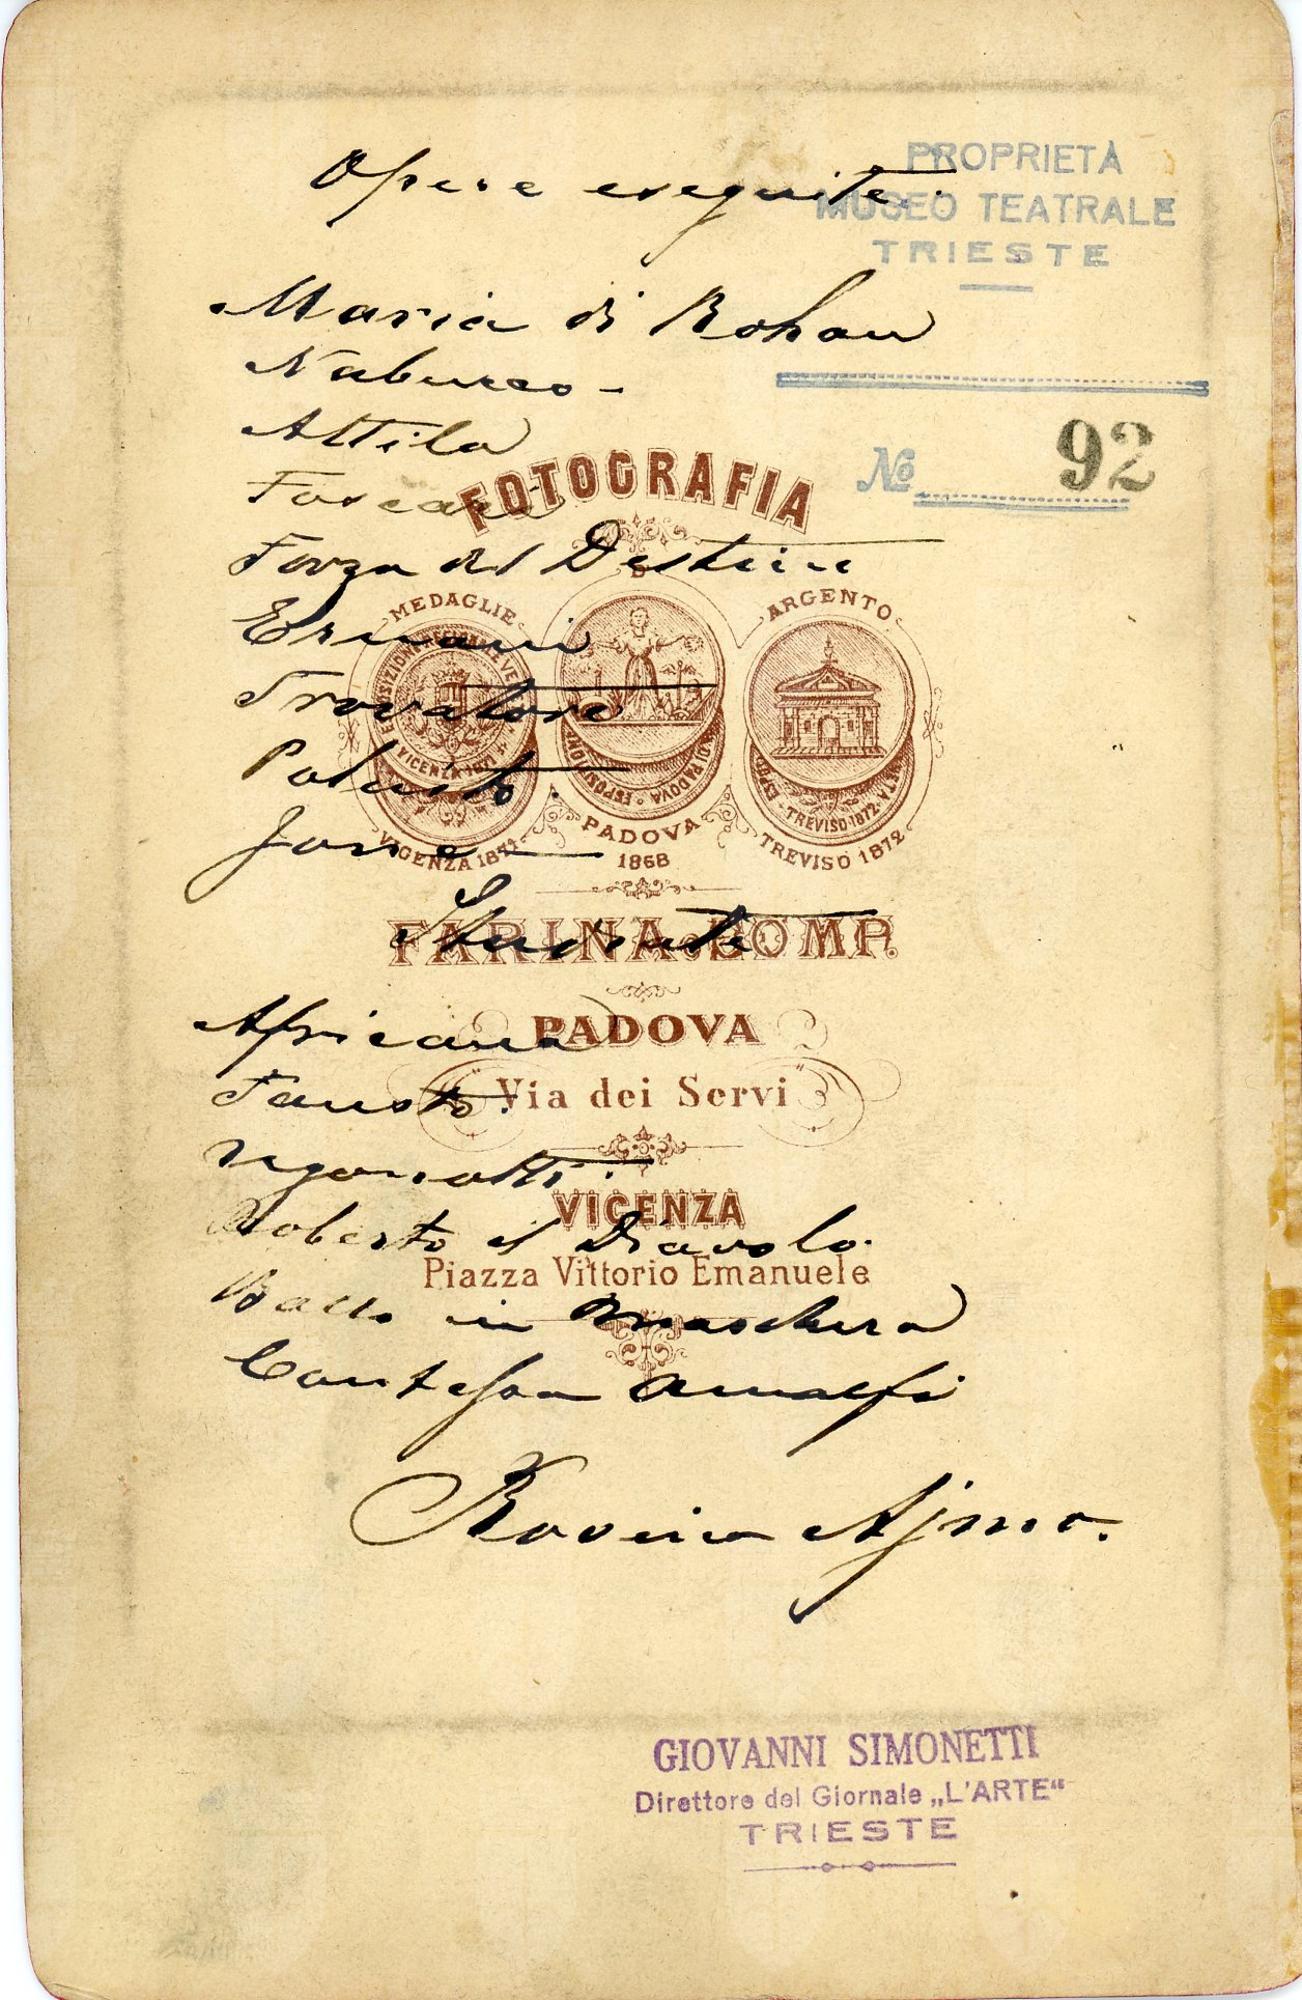 Opere eseguite.
PROPRIETÀ
MUSEO TEATRALE
TRIESTE
Maria di Rohan
Nabucco -
Attila
No 92
Foscari
FOTOGRAFIA
Forza del Destino
DI
MEDAGLIE
ARGENTO
Ernani
Trovatore
Poliuto.
VICENZA 1871
PADOVA
1868
TREVISO 1872
Jone
Studiate
FARINA & COMP.
Africana
PADOVA
Fausto.
Via dei Servi
Ugonotti.
VICENZA
Roberto il Diavolo.
Piazza Vittorio Emanuele
Ballo in Maschera
Contessa Amalfi
Ajmo.
GIOVANNI SIMONETTI
Direttore del Giornale „L'ARTE“
TRIESTE